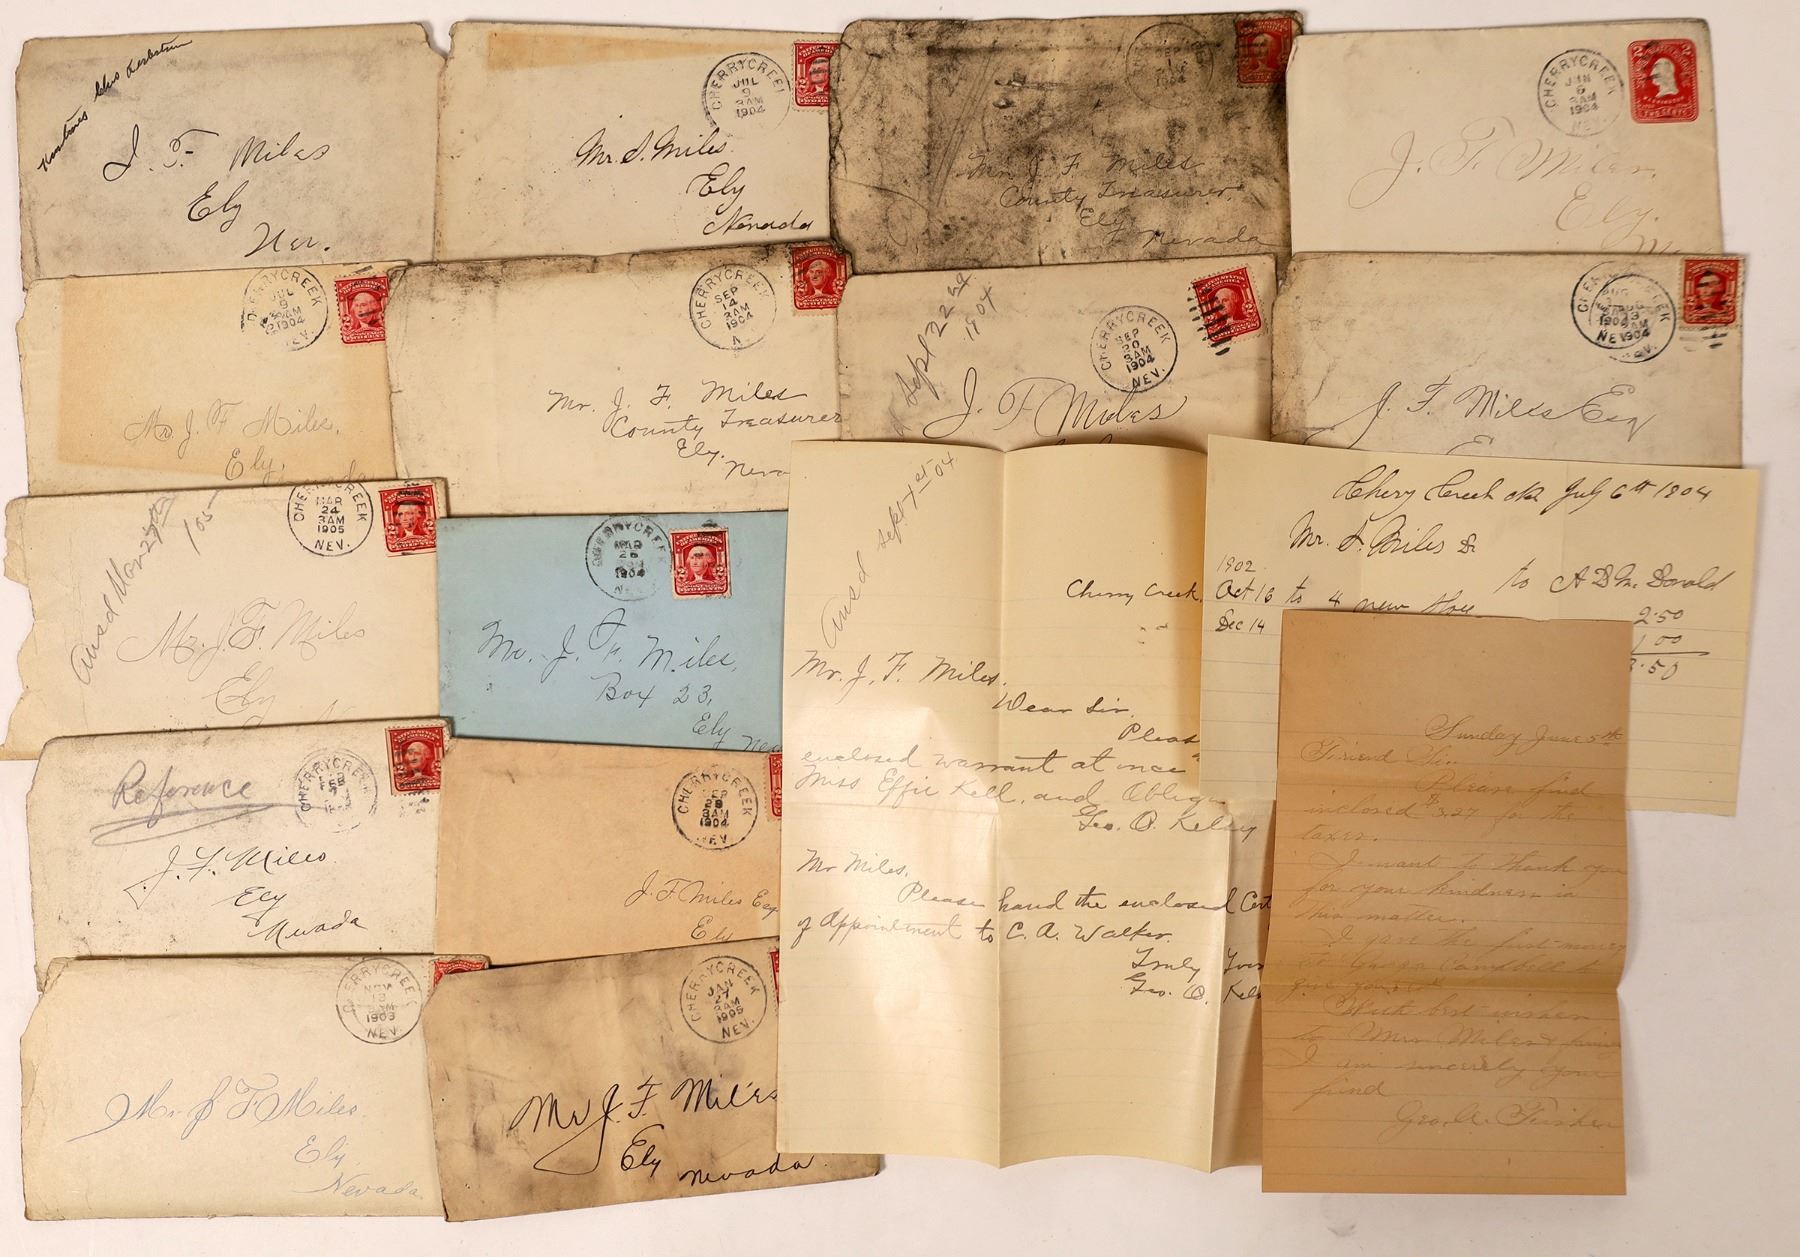 J. F. Miles
Ely
Nev.
CHERRY CREEK
JUL
9
3AM
1904
Mr. J. Miles.
Ely
Nevada
SEP
1904
Mr. J. F. Miles
County Treasurer,
Ely
Nevada
CHERRYCREEK
JUN
6
3AM
1904
NEV.
2 2
WASHINGTON
TWO CENTS
J. F. Miles.
Ely.
CHERRYCREEK
JUL
9
3AM
1904
NEV.
Mr. J. F. Miles,
Ely,
CHERRYCREEK
SEP
14
3AM
1904
N
Mr. J. F. Miles
County Treasurer
Ely.
Neva
Sept 22nd
1904
CHERRYCREEK
SEP
20
3AM
1904
NEV.
J. F. Miles
1904
NEV.
J. F. Miles Esq
Ansd Mar 25th
105
CHERRYCREEK
MAR
24
3AM
1905
NEV.
Mr. J. F. Miles
Ely
CHERRYCREEK
MAR
1904
N
Mr. J. F. Miles,
Box 23,
Ely
Nev
Reference
CHERRYCREEK
FEB
J. F. Miles
Ely
Nevada
CHERRYCREEK
SEP
29
3AM
1904
NEV
J. F. Miles Esq
Ely
CHERRYCREEK
NOV
1903
NEV.
Mr J F Miles.
Ely
Nevada
CHERRYCREEK
JAN
27
3AM
1905
NEV.
Mr J. F. Miles
Ely
Nevada
Ansd Sept 1st 04
Cherry Creek,
Mr. J. F. Miles.
Dear Sir,
Pleas
enclosed warrant at once
Miss Effie Kell, and Oblige
Geo. O. Kelsy
Mr Miles,
Please hand the enclosed Cert
of Appointment to C. A. Walker.
Truly Your
Geo. O. Kels
Chery Creek July 6th 1904
Mr. J. Miles Dr
to A D Mc Donald
1902
Oct 16 to 4 new
2.50
Dec 14
1 00
3.50
Sunday June 5th
Friend Sir.
Please find
inclosed $3.27 for the
taxes.
I want to thank you
for your kindness in
this matter.
I gave the money
to Campbell to
give you
With best wishes
to Mrs Miles & family
I am sincerely your
friend
Geo. A. Fisher